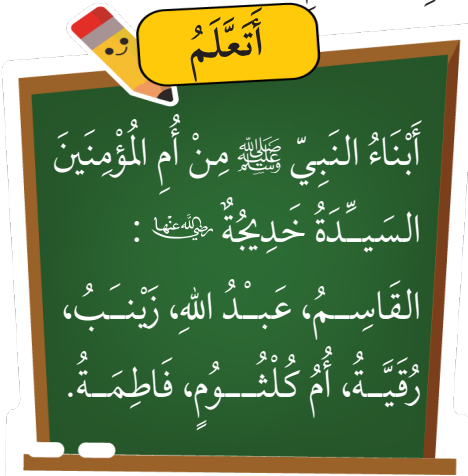 أَتَعَلَّمُ
أَبْنَاءُ النَبِيِّ ﷺ مِنْ أُمِ المُؤْمِنَينَ
السَيِّدَةُ خَدِيجُةٌ رضي الله عنها :
القَاسِمُ، عَبْدُ اللهِ، زَيْنَبُ،
رُقَيَّةُ، أُمُ كُلْثُومٍ، فَاطِمَةُ.